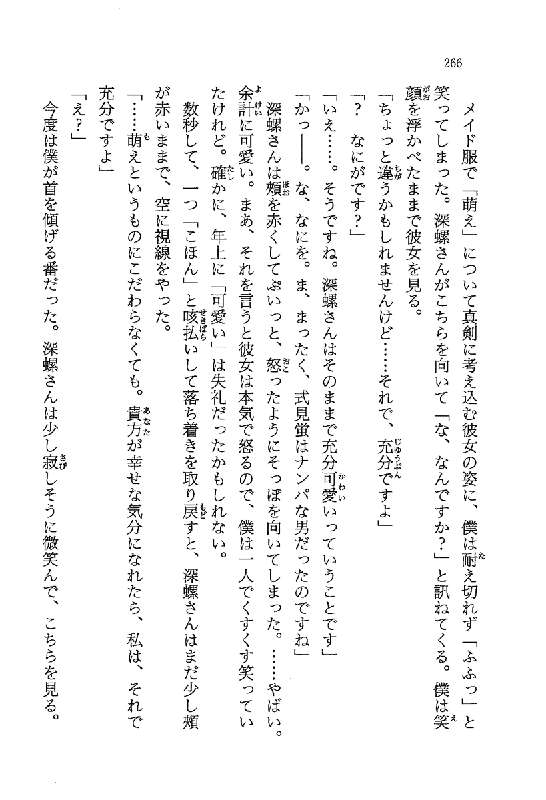 266
メイド服で「萌え」について真剣に考え込む彼女の姿に、僕は耐え切れず「ふふっ」と
笑ってしまった。深螺さんがこちらを向いて「な、なんですか？」と訊ねてくる。僕は笑
顔を浮かべたままで彼女を見る。
「ちょっと違うかもしれませんけど……それで、充分ですよ」
「？　なにがです？」
「いえ……。そうですね。深螺さんはそのままで充分可愛いっていうことです」
「かっ――。な、なにを。ま、まったく、式見蛍はナンパな男だったのですね」
深螺さんは頬を赤くしてぷいっと、怒ったようにそっぽを向いてしまった。……やばい。
余計に可愛い。まあ、それを言うと彼女は本気で怒るので、僕は一人でくすくす笑ってい
たけれど。確かに、年上に「可愛い」は失礼だったかもしれない。
数秒して、一つ「こほん」と咳払いして落ち着きを取り戻すと、深螺さんはまだ少し頬
が赤いままで、空に視線をやった。
「……萌えというものにこだわらなくても。貴方が幸せな気分になれたら、私は、それで
充分です」
「え？」
今度は僕が首を傾げる番だった。深螺さんは少し寂しそうに微笑んで、こちらを見る。